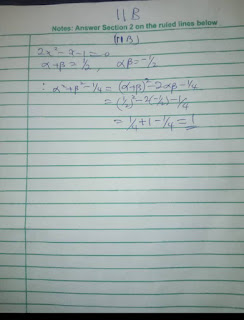 11B
Notes: Answer Section 2 on the ruled lines below
(11B)
2x² - x - 1 = 0
α+β = ½, αβ = -½
∴ α²+β² - ¼ = (α+β)² - 2αβ - ¼
= (½)² - 2(-½) - ¼
= ¼ + 1 - ¼ = 1